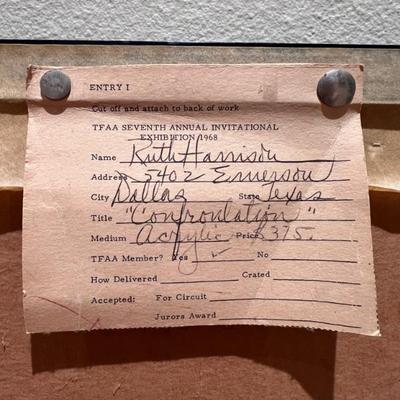 ENTRY I
Cut off and attach to back of work
TFAA SEVENTH ANNUAL INVITATIONAL
EXHIBITION 1968
Name Ruth Harrison
Address 5402 Emerson
City Dallas State Texas
Title "Confrontation"
Medium Acrylic Price $375.
TFAA Member? Yes ✓ No
How Delivered Crated
Accepted: For Circuit
Jurors Award